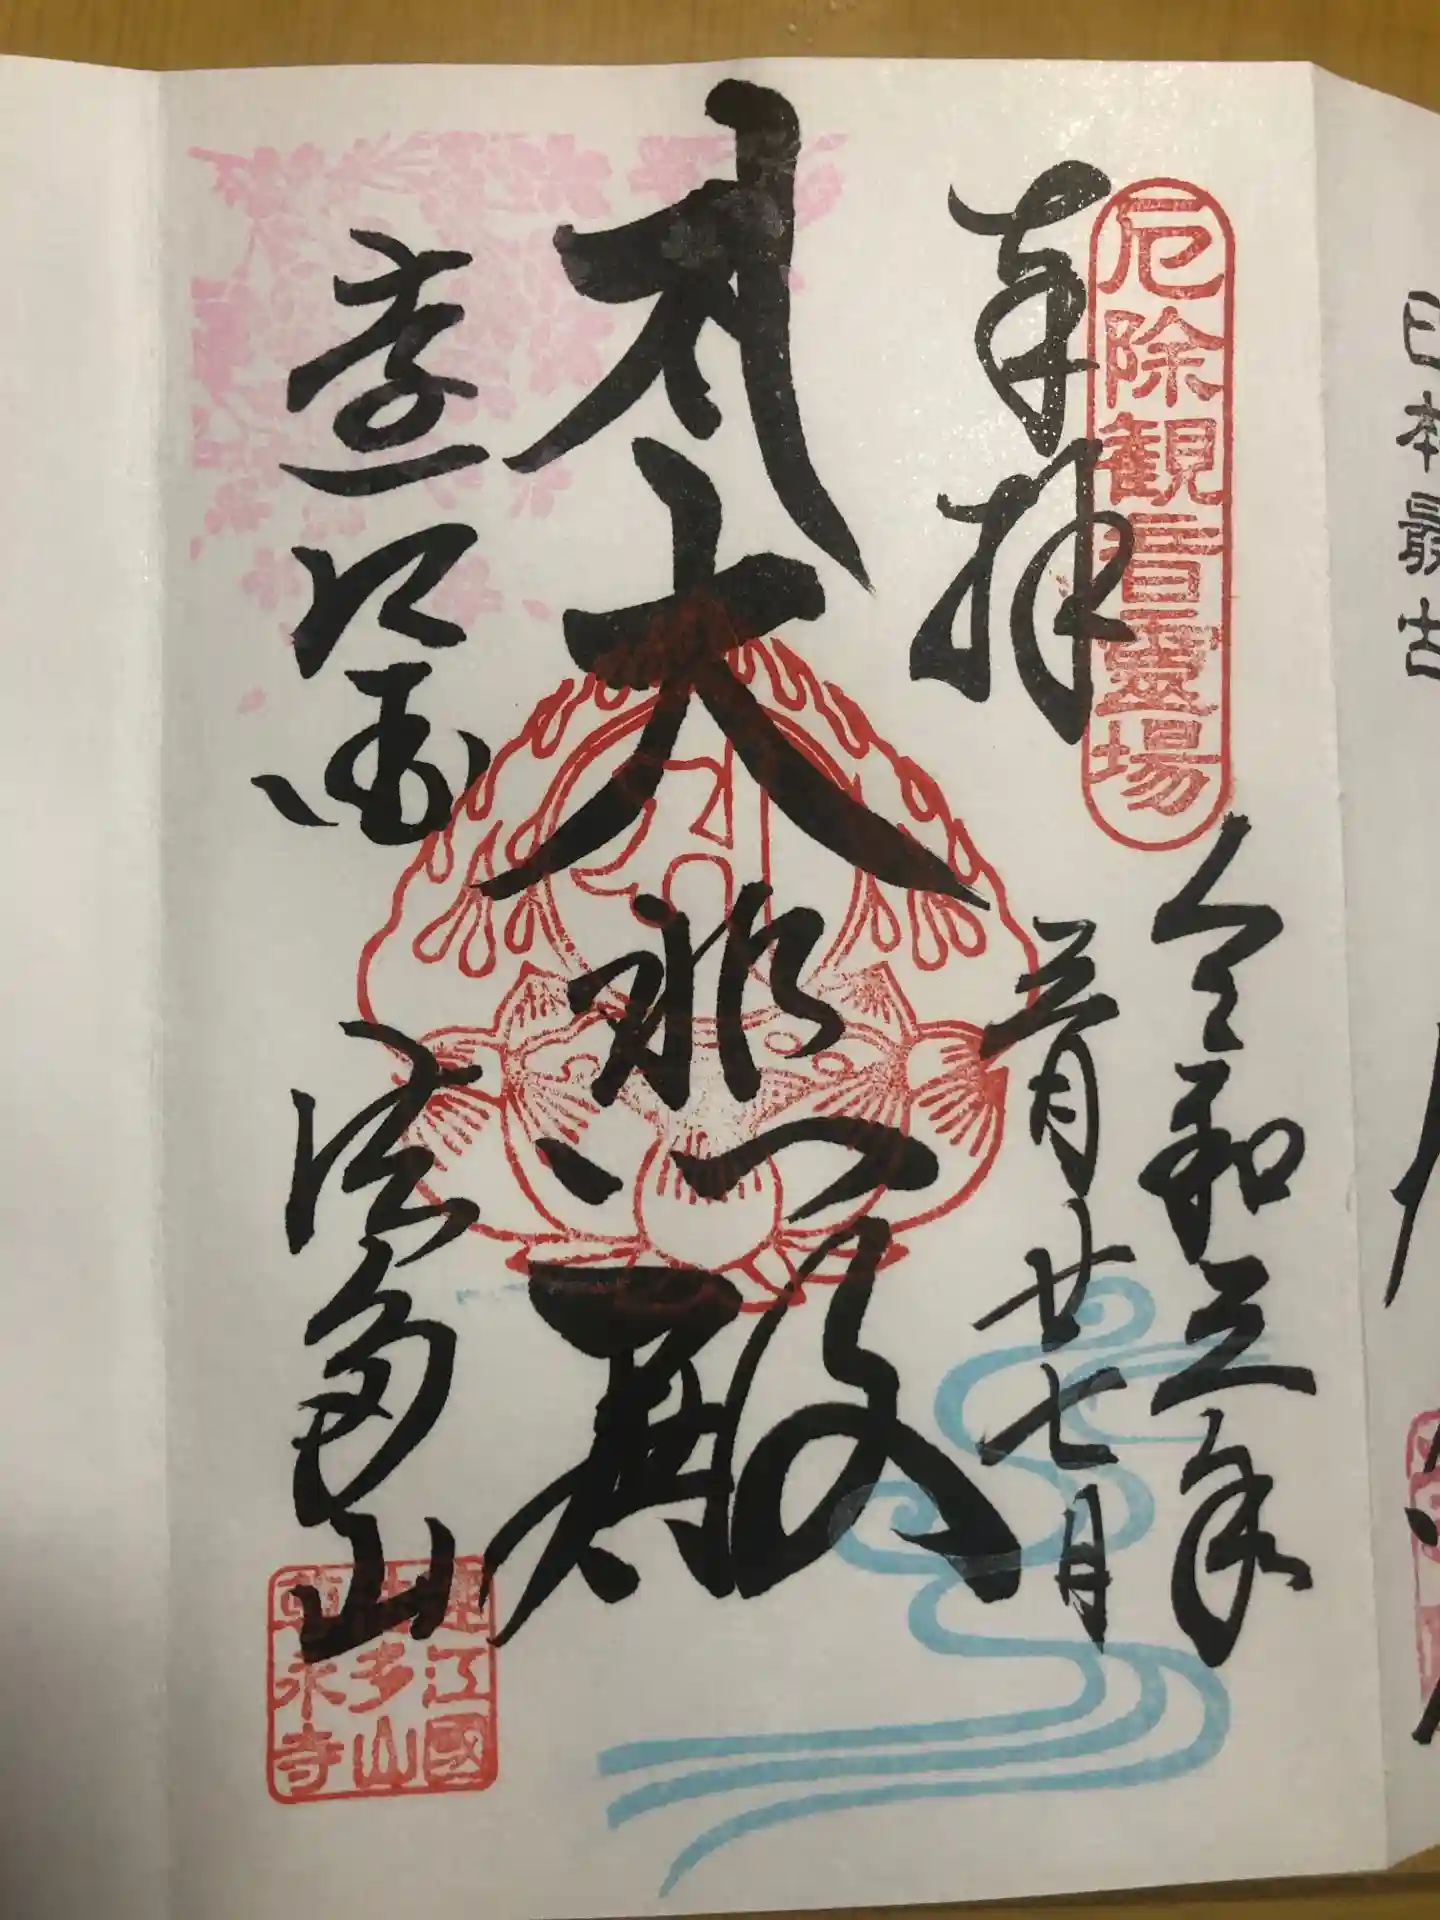 日本最古
厄除観音霊場
奉拝
令和三年
三月廿七日
大悲殿
遠江国 法多山
遠江國
法多山
尊永寺